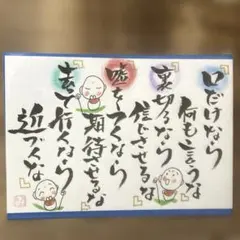 口だけなら
何も言うな
裏切るなら
信じさせるな
嘘をつくなら
期待させるな
去って行くなら
近づくな